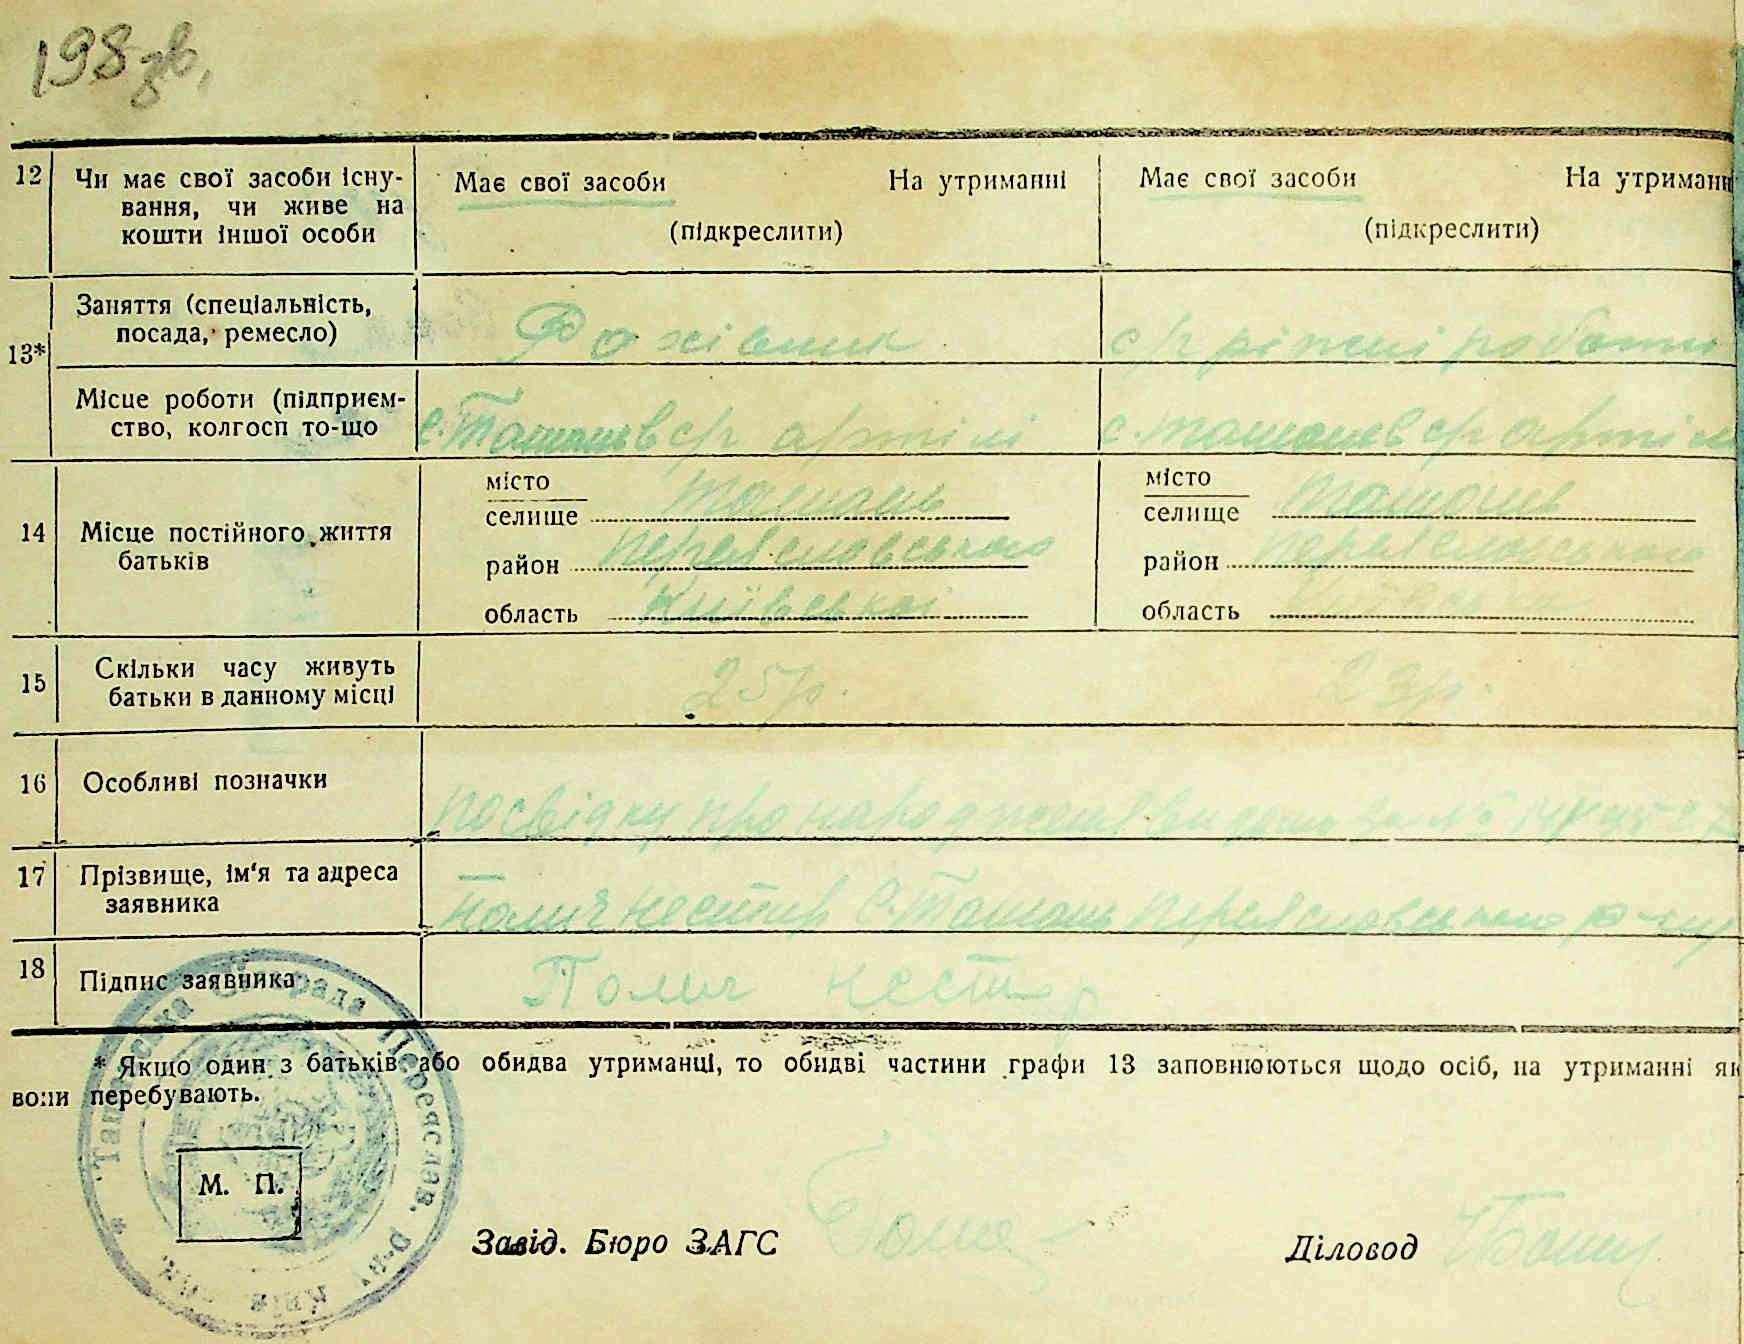 198 зв.
12 Чи має свої засоби існу-
вання, чи живе на
кошти іншої особи
Має свої засоби На утриманні
(підкреслити)
Має свої засоби На утриманн
(підкреслити)
13*
Заняття (спеціальність,
посада, ремесло)
с/г ріжні роботи
Місце роботи (підприєм-
ство, колгосп то-що
с. Ташань в с/г артілі
с. Ташань в с/г артіл
14 Місце постійного життя
батьків
місто
селище Ташань
район Переяславського
область Київської
місто
селище Ташань
район Переяславського
область
15 Скільки часу живуть
батьки в данному місці
25 р.
23 р.
16 Особливі позначки
посвідку про народжен видано за №
17 Прізвище, ім'я та адреса
заявника
Полич Нестир С. Ташань Переяславського р-ну
18 Підпис заявника
Полич Нестир
* Якщо один з батьків або обидва утриманці, то обидві частини графи 13 заповнюються щодо осіб, на утриманні як
вони перебувають.
М. П.
Завід. Бюро ЗАГС
Діловод
рада Переяслав. р-ну